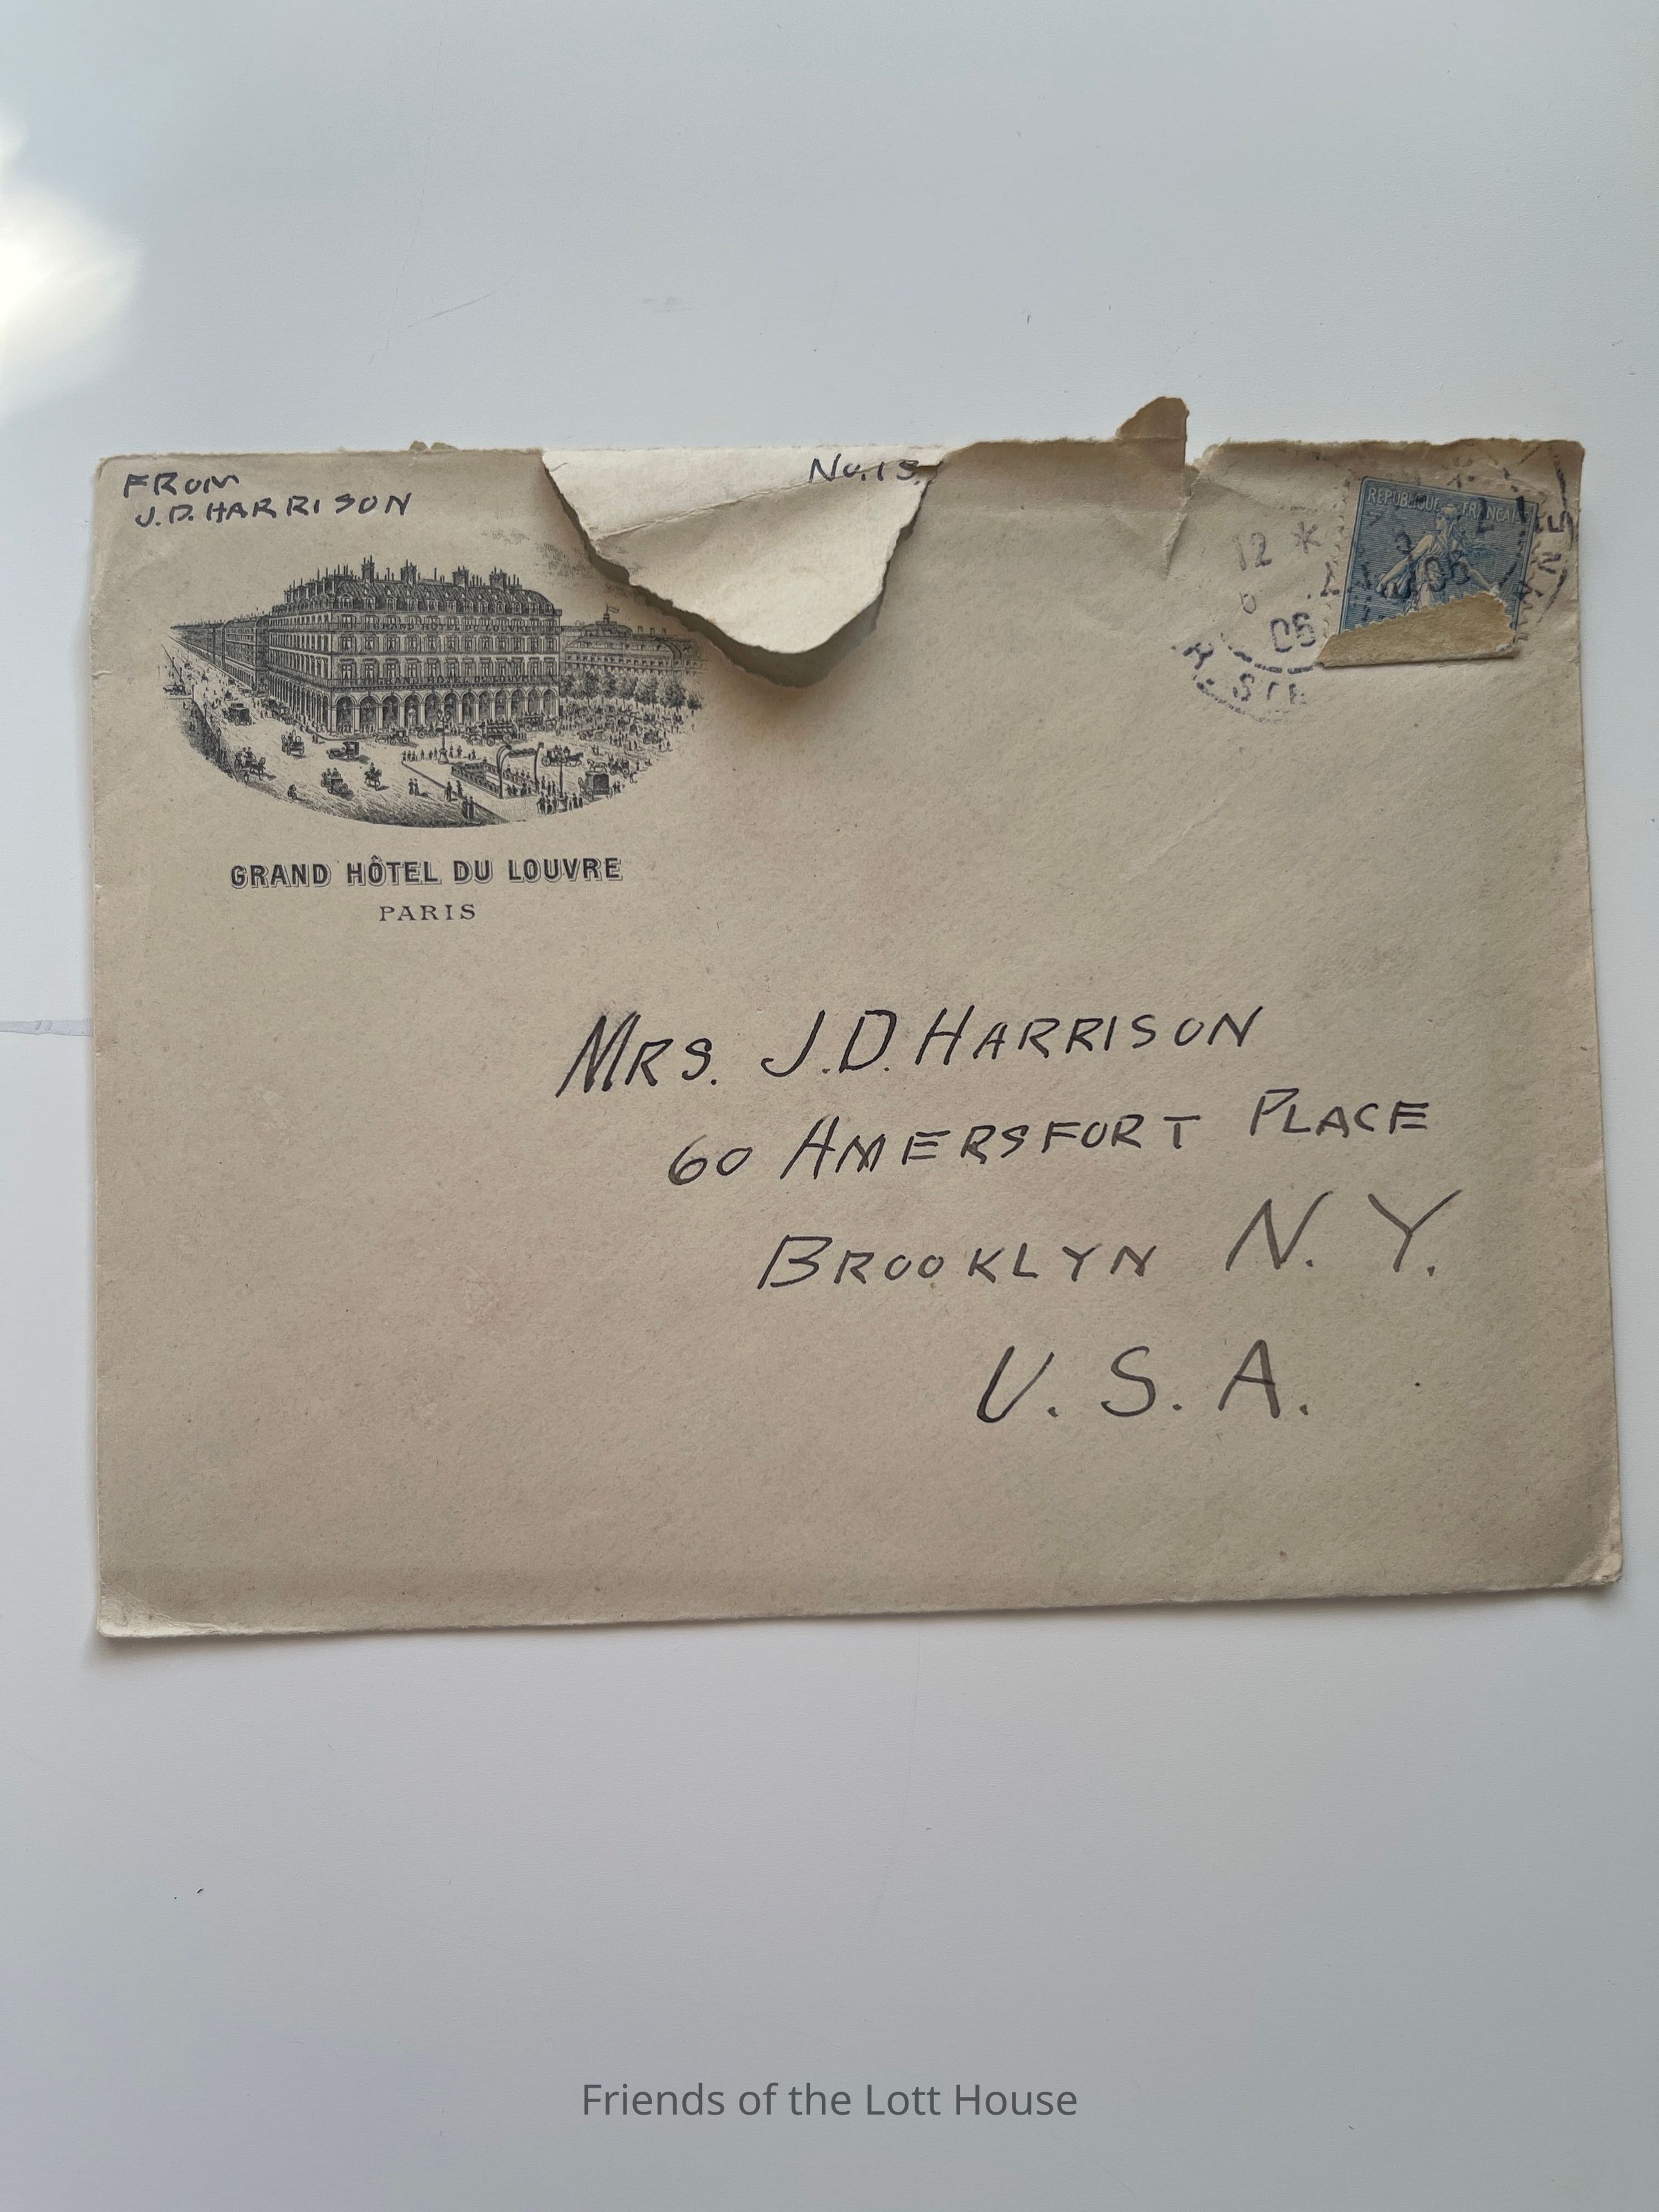 FROM
J.D. HARRISON
No. 15.
REPUBLIQUE FRANCAISE
12 *
06
GRAND HOTEL DU LOUVRE
GRAND HÔTEL DU LOUVRE
PARIS
MRS. J.D. HARRISON
60 AMERSFORT PLACE
BROOKLYN N. Y.
U. S. A.
Friends of the Lott House